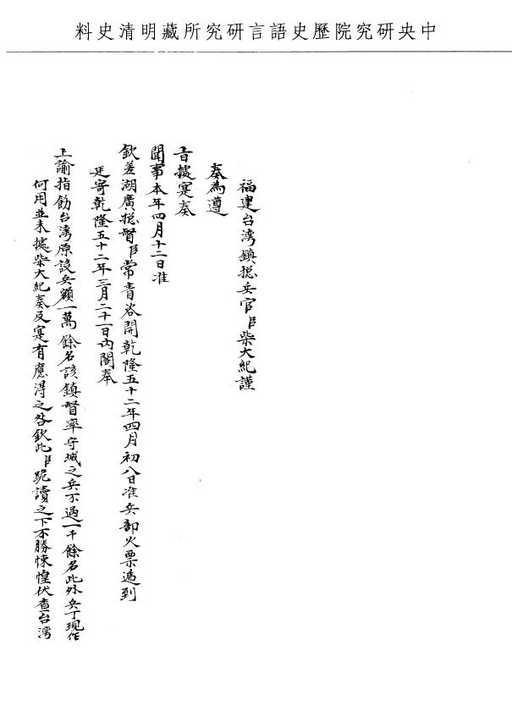 中央研究院歷史語言研究所藏明清史料
福建台湾鎮揔兵官臣柴大紀謹
奏為遵
旨據寔奏
聞事本年四月十二日准
欽差湖廣揔督臣常青咨開乾隆五十二年四月初八日准兵部火票逓到
廷寄乾隆五十二年三月二十一日內閣奉
上諭指飭台湾原設兵額一萬餘名該鎮督率守城之兵不過一千餘名此外兵丁現作
何用並未據柴大紀奏及寔有應得之咎欽此臣跪讀之下不勝悚惶伏查台湾